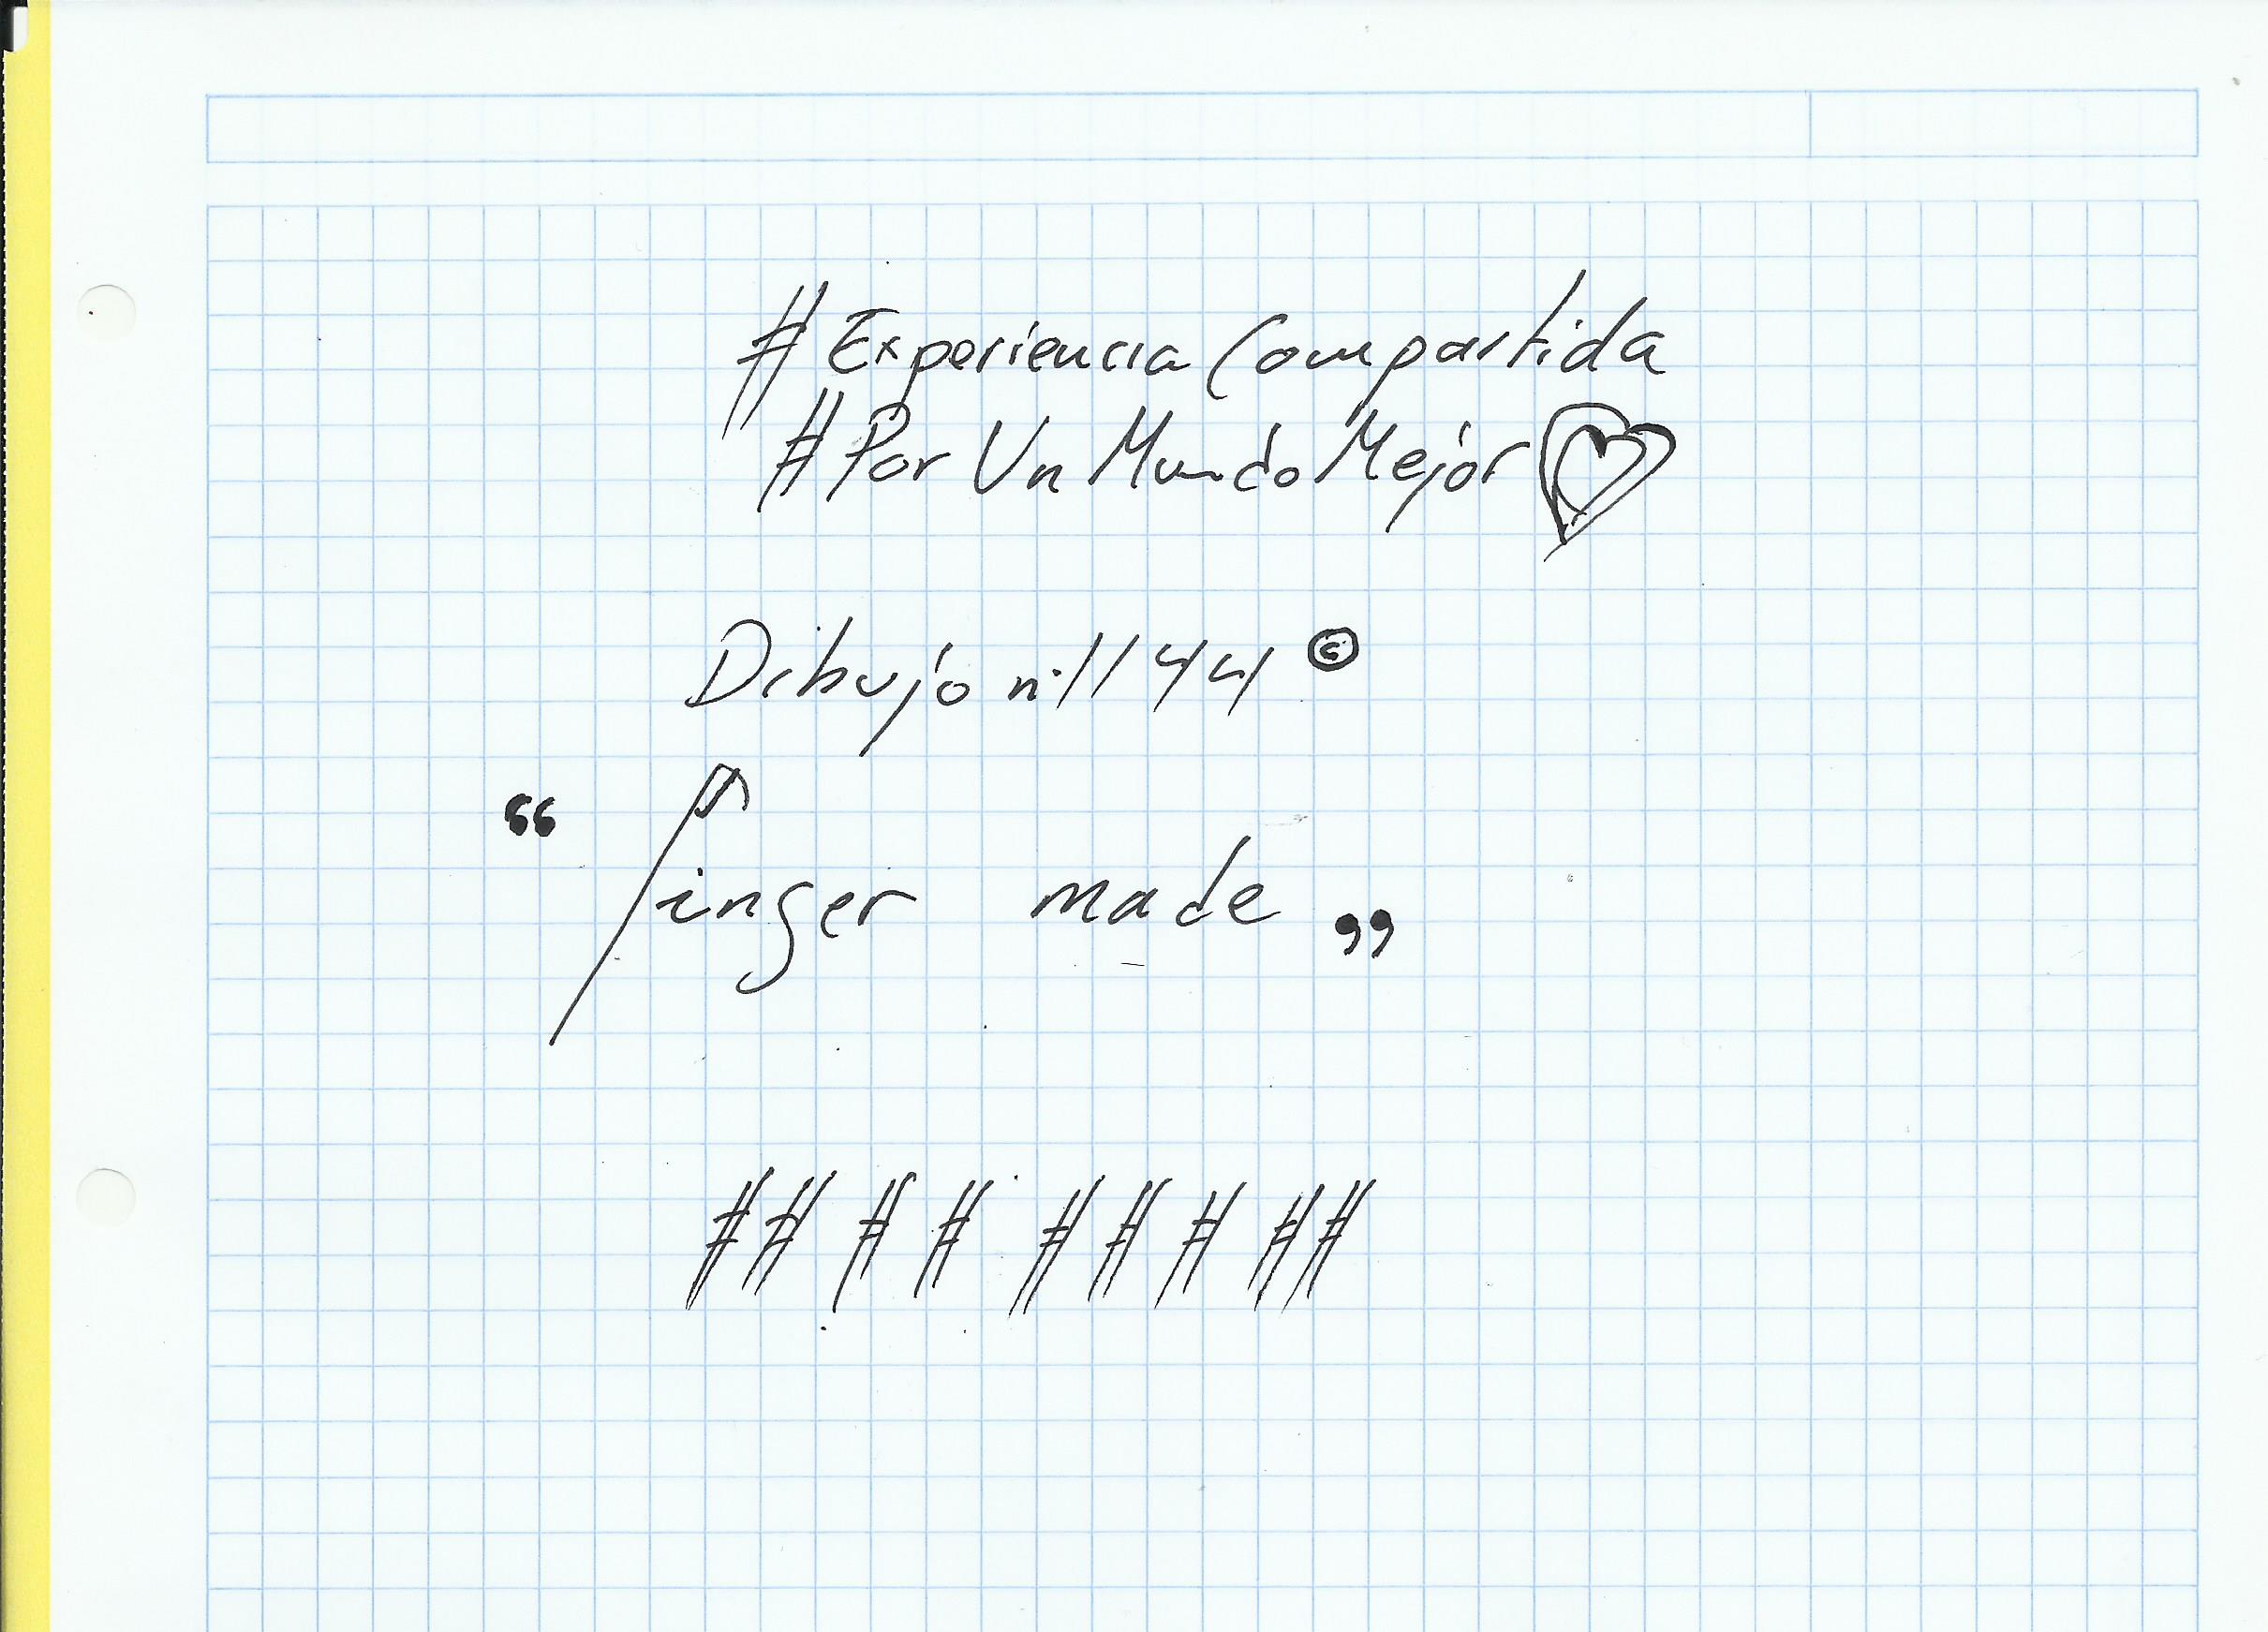 #ExperienciaCompartida
#PorUnMundoMejor
Dibujo n. 1144 ©
“finger made”
# # # # # # # # #